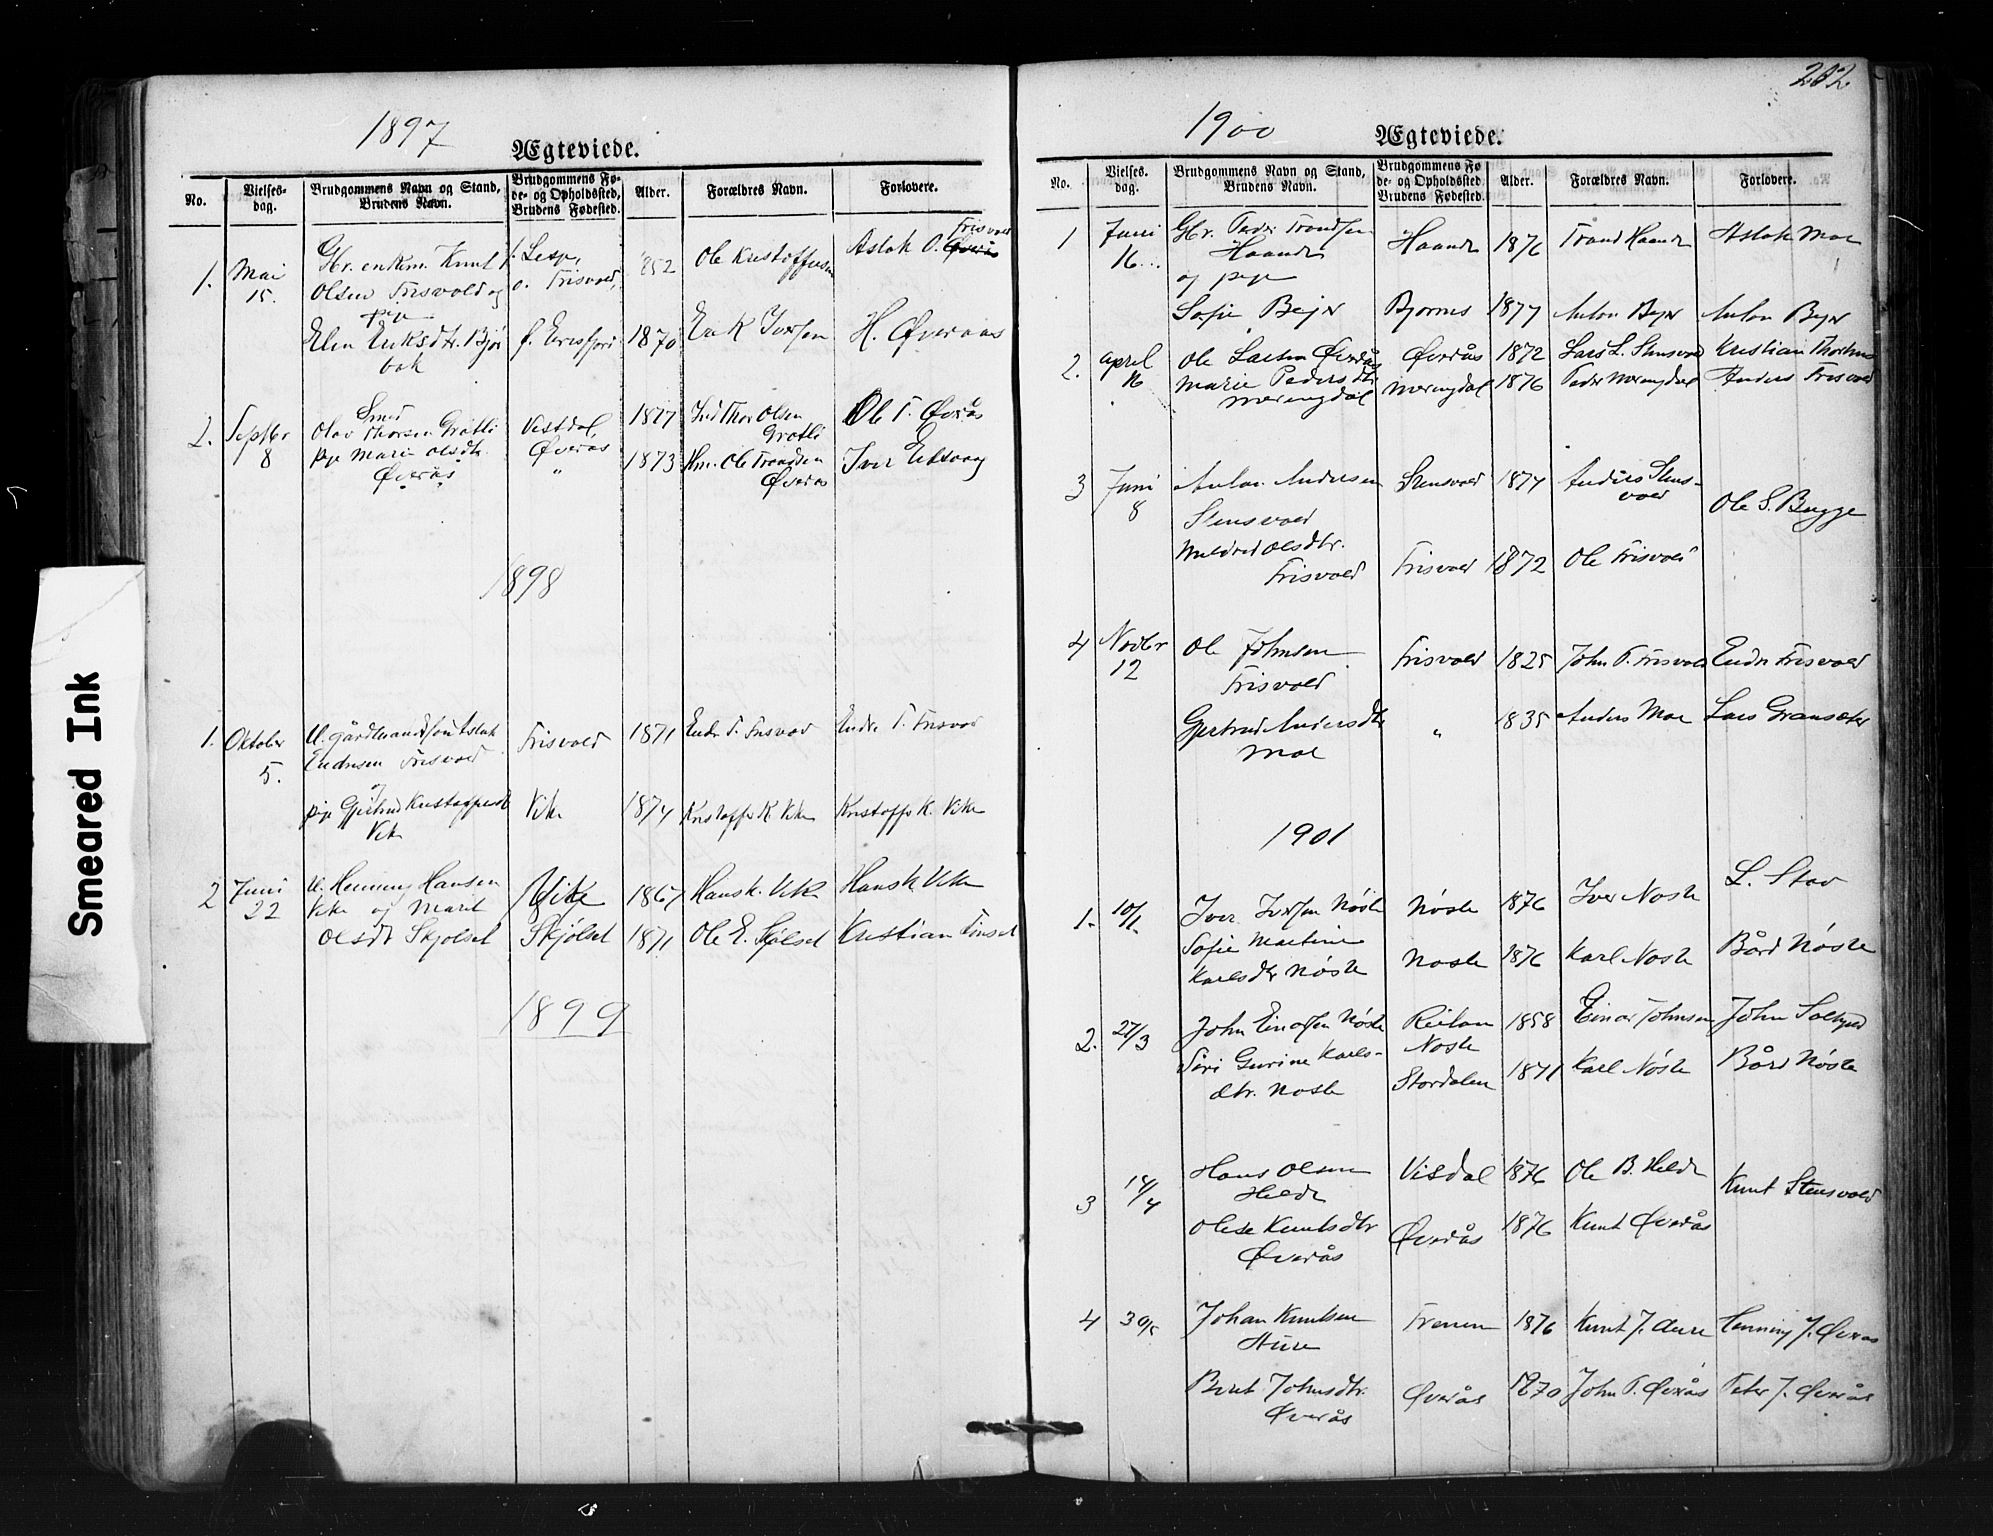 Smeared Ink
1897
Ægteviede.
No.
Vielses-
dag.
Brudgommens Navn og Stand,
Brudens Navn.
Brudgommens Fø-
de- og Opholdssted,
Brudens Fødested.
Alder.
Forældres Navn.
Forlovere.
1.
Mai
15.
Gbr. enkem. Knut
Olsen Frisvold og
pige
Elen Eriksdtr. Bjør
bak
f. Lesja,
o. Frisvold,
f. Eresfjord
1852
1870
Ole Kristoffersen
Erik Iversen
Frisvold
Aslak O. Øverås
H. Øveraas
2.
Septbr
8
Smed
Olav Thorsen Grøtli
pige Marie Olsdtr.
Øverås
Vestdal,
Øverås
"
1877
1873
Ind Thor Olsen
Grøtli
Hm. Ole Trondsen
Øverås
Ole T. Øverås
Iver Eltsvag
1898
1.
Oktober
5.
U. gårdmandssøn Aslak
Endresen Frisvold
og
pige Gjertrud Kristoffersdt
Vike
Frisvold
Vike
1871
1874
Endre T. Frisvold
Kristoffer K. Vike
Endre T. Frisvold
Kristoffer K. Vike
2
Juni
22
U. Henning Hansen
Vike og Marit
Olsdt Skjølset
Vike
Skjølset
1867
1871
Hans K. Vike
Ole E. Skjølset
Hans K Vike
Kristian Finset
1899
202
1900
Ægteviede.
No.
Vielses.
dag.
Brudgommens Navn og Stand,
Brudens Navn.
Brudgommens Fø
de- og Opholdssted
Brudens Fødested.
Alder.
Forældres Navn.
Forlovere.
1
Juni
16
Gbr. Peder Trondsen
Haande
og pige
Sofie Bejer
Haande
Bjørnes
1876
1877
Trond Haande
Anton Bejer
Aslak Moe
Anton Bejer
2.
April
16
Ole Larsen Øverås
Marie Pedersdtr
Meringdal
Øverås
Meringdal
1872
1876
Lars L. Stensvold
Peder Meringdal
Kristian Thorhus
Anders Frisvold
3
Juni
8
Anton Andersen
Stensvold
Mildrid Olsdtr.
Frisvold
Stensvold
Frisvold
1874
1872
Anders Stens-
vold
Ole Frisvold
Ole S. Bugge
4
Novbr
12
Ole Johnsen
Frisvold
Gjertrud Andersdtr
Moe
Frisvold
"
1825
1835
John T. Frisvold
Anders Moe
Endre Frisvold
Lars Gransæter
1901
1.
10/1.
Iver Iversen Nøste
Sofie Martine
Karlsdtr Nøste
Nøste
Nøste
1876
1876
Iver Nøste
Karl Nøste
L. Stav
Bård Nøste
2.
27/3
John Einarsen Nøste
Siri Gurine Karls-
dtr. Nøste
Reitan
Nøste
Stordalen
1858
1871
Einar Johnsen
Karl Nøste
John
Bård Nøste
3
14/4
Hans Olsen
Helde
Olese Knutsdtr
Øverås
Visdal
Øverås
1876
1876
Ole B. Helde
Knut Øverås
Knut Stensvold
4
30/5
Johan Knutsen
Aure
Berit Johnsdtr.
Øverås
Frenen
Øverås
1876
1870
Knut J. Aure
John T. Øverås
Henning J. Øverås
Peter J. Øverås